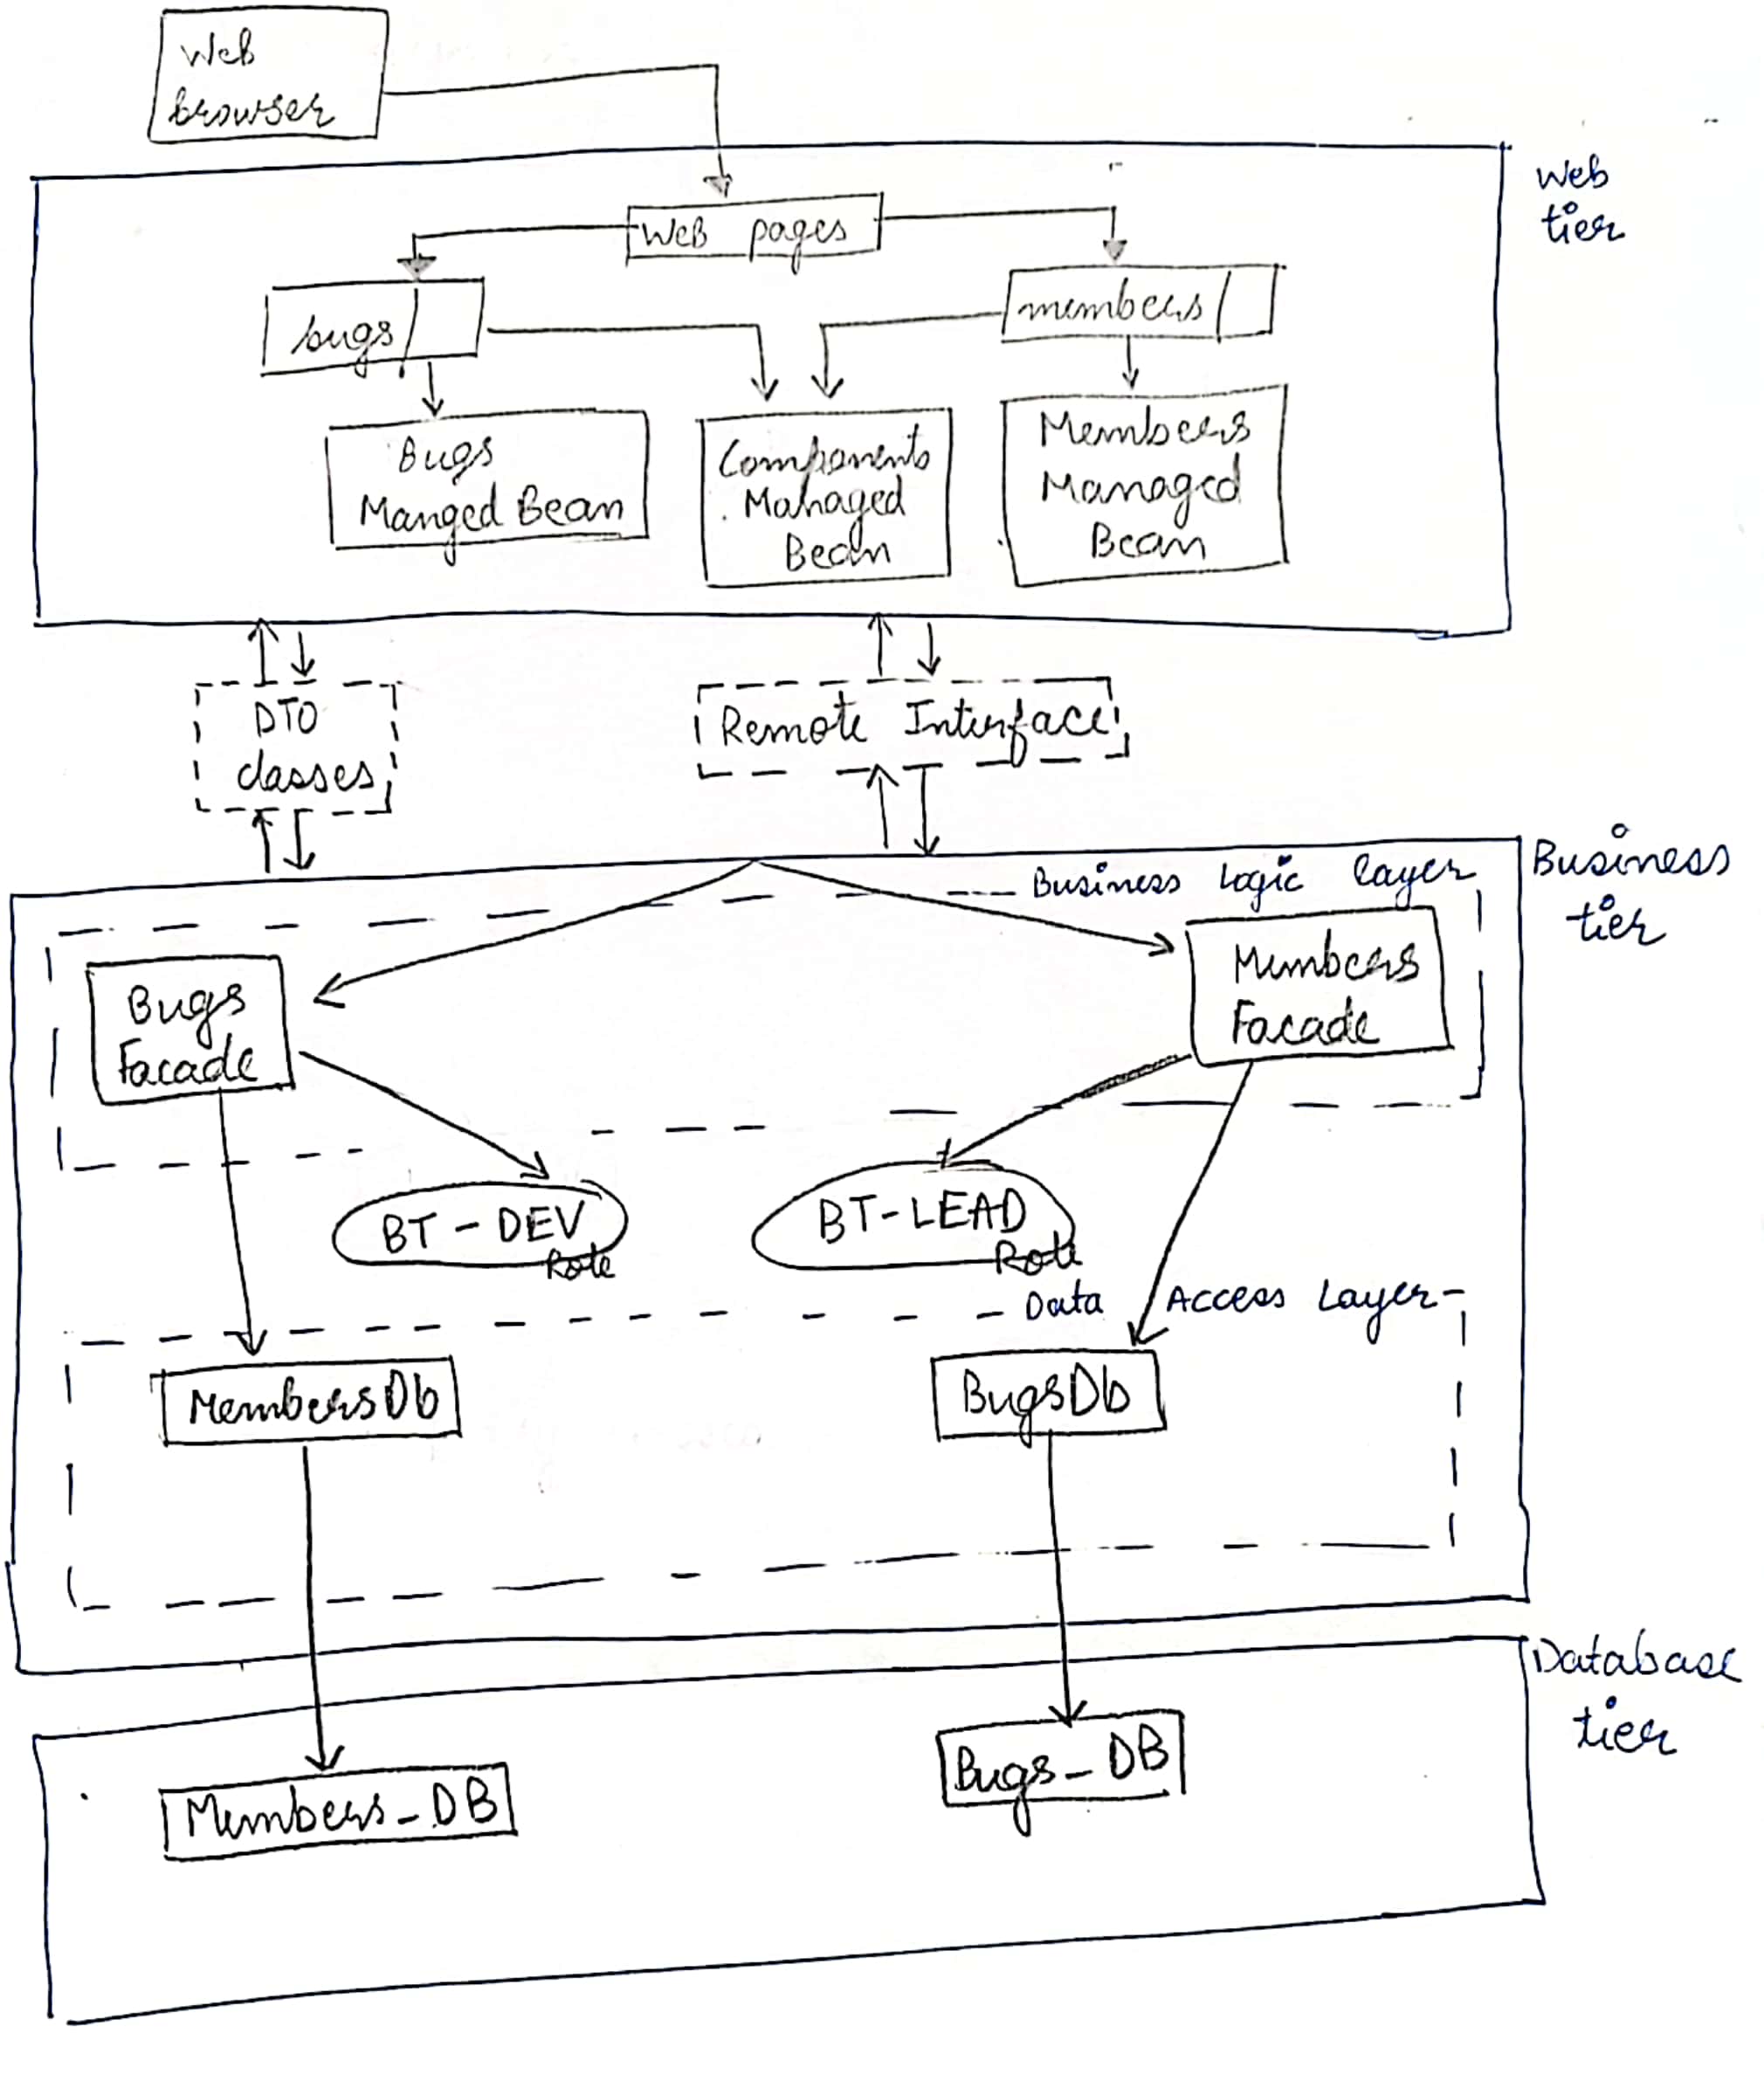 Web
browser
Web
tier
Web pages
bugs/
members/
Bugs
Manged Bean
Components
Managed
Bean
Members
Managed
Bean
DTO
classes
Remote Interface
Business
tier
Business Logic layer
Bugs
Facade
Members
Facade
BT-DEV
Role
BT-LEAD
Role
Data Access Layer
MembersDb
BugsDb
Database
tier
Members_DB
Bugs_DB